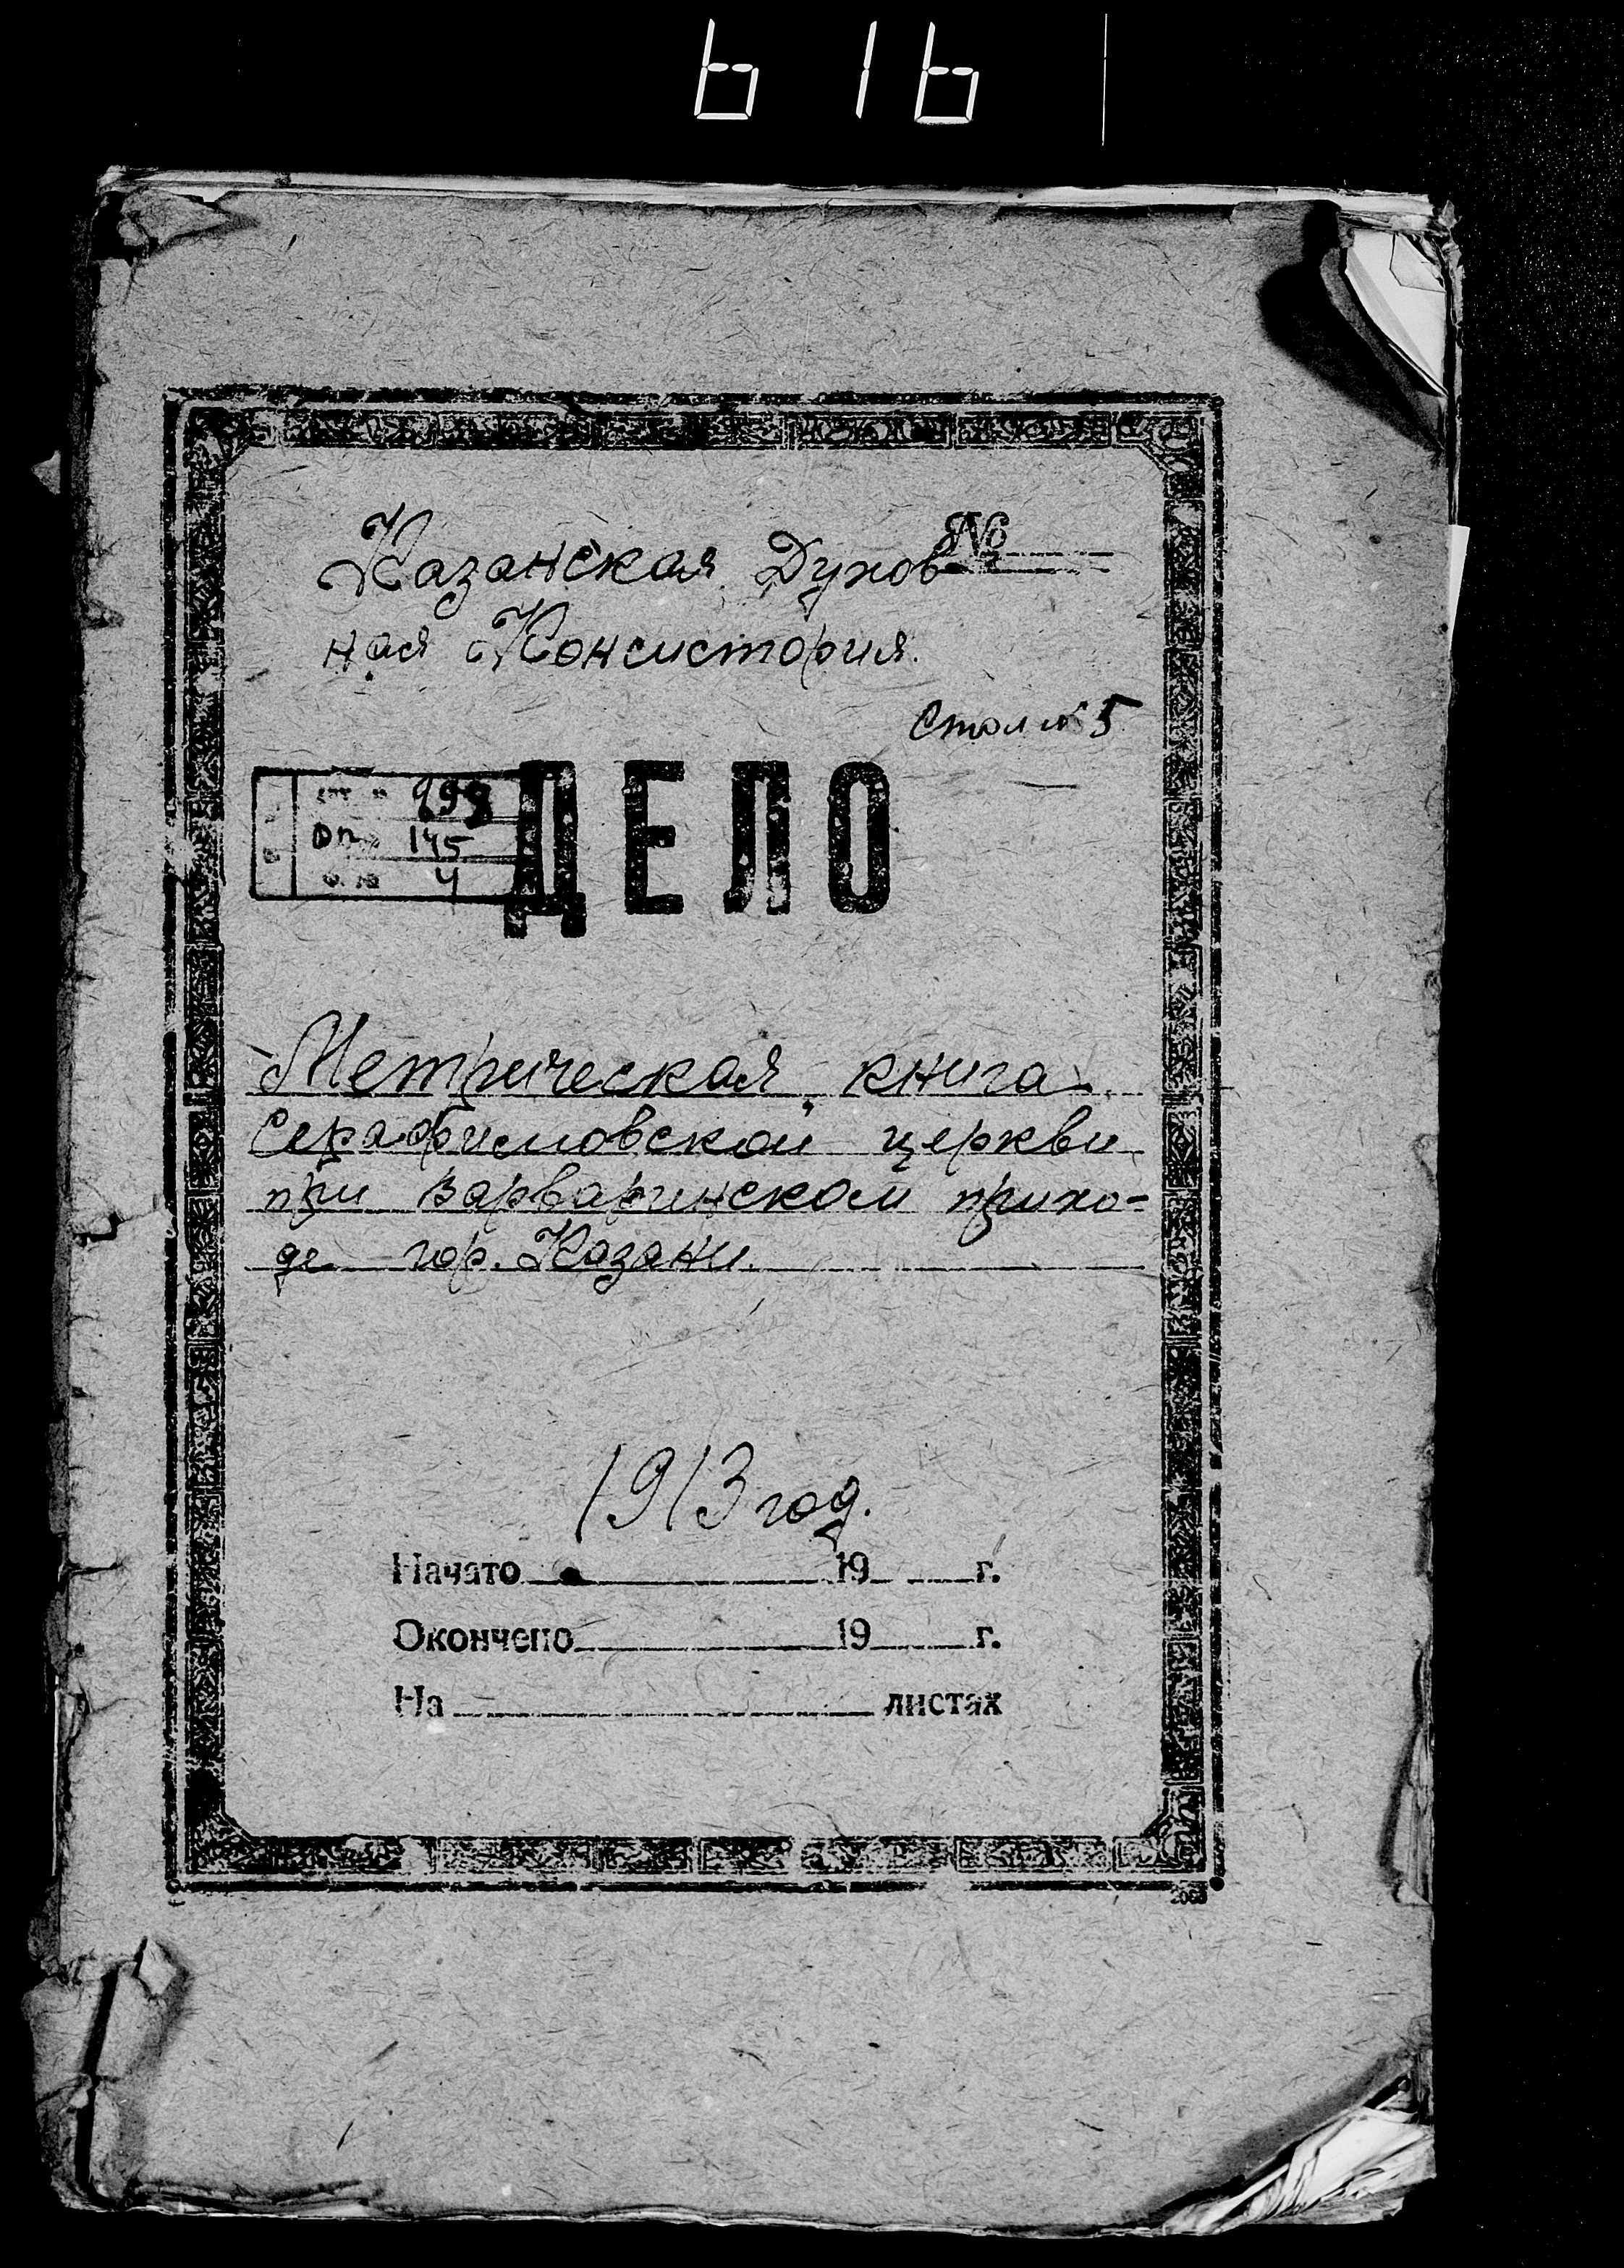 616
№
Казанская Духов
ная Консистория.
Стол № 5
оп. 145
4
ДЕЛО
Метрическая книга
Серафимовской церкви
при Варваринском прихо-
де гор. Казани.
1913 год.
Начато 19 г.
Окончено 19 г.
На листах